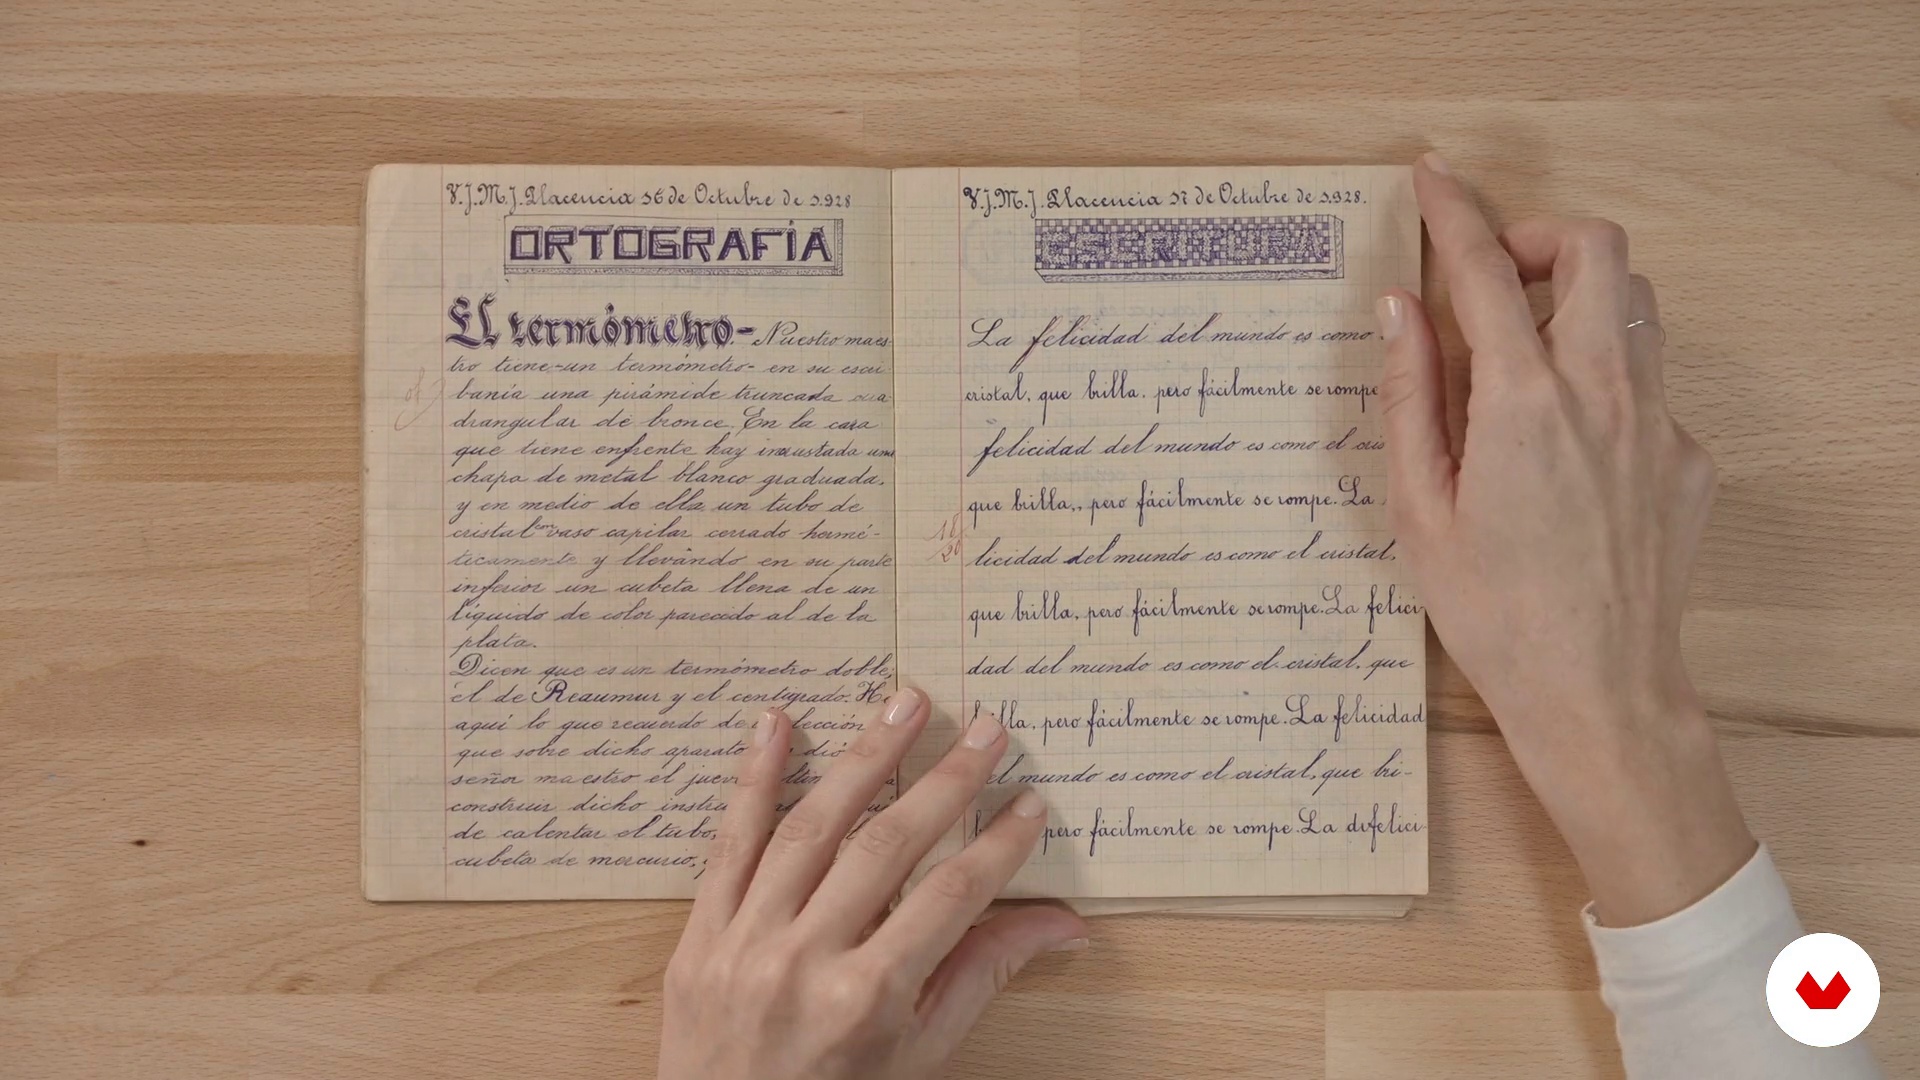 V.J.M.J. Placencia 16 de Octubre de 1.928
ORTOGRAFÍA
El termómetro.- Nuestro maes-
tro tiene-un termómetro- en su escri-
bania una pirámide truncada cua-
drangular de bronce. En la cara
que tiene enfrente hay incrustada una
chapa de metal blanco graduada,
y en medio de ella un tubo de
cristal con vaso capilar cerrado hermé-
ticamente y llevando en su parte
inferior un cubeta llena de un
líquido de color parecido al de la
plata.
Dicen que es un termómetro doble;
el de Reaumur y el centigrado. He
aquí lo que recuerdo de lección
que sobre dicho aparato dió
señor maestro el
construir dicho
de calentar el tubo,
cubeta de mercurio,
V.J.M.J. Placencia 17 de Octubre de 1.928.
ESCRITURA
La felicidad del mundo es como
cristal, que brilla, pero fácilmente se rompe
felicidad del mundo es como el cris
que brilla,, pero fácilmente se rompe. La
18
20
licidad del mundo es como el cristal,
que brilla, pero fácilmente se rompe. La felici-
dad del mundo es como el cristal, que
brilla, pero fácilmente se rompe. La felicidad
el mundo es como el cristal, que bri-
pero fácilmente se rompe. La difelici-